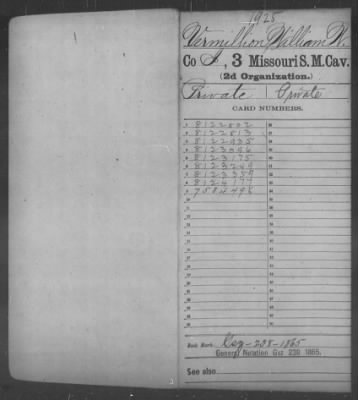 1925
Vermillion, William W.
Co I, 3 Missouri S. M. Cav.
(2d Organization.)
Private | Private
CARD NUMBERS.
8122802
8122813
8122935
8123046
8123175
8123249
8123389
8124177
7584496
Book Mark: Reg-238-1865
General Notation Gaz 238 1865.
See also